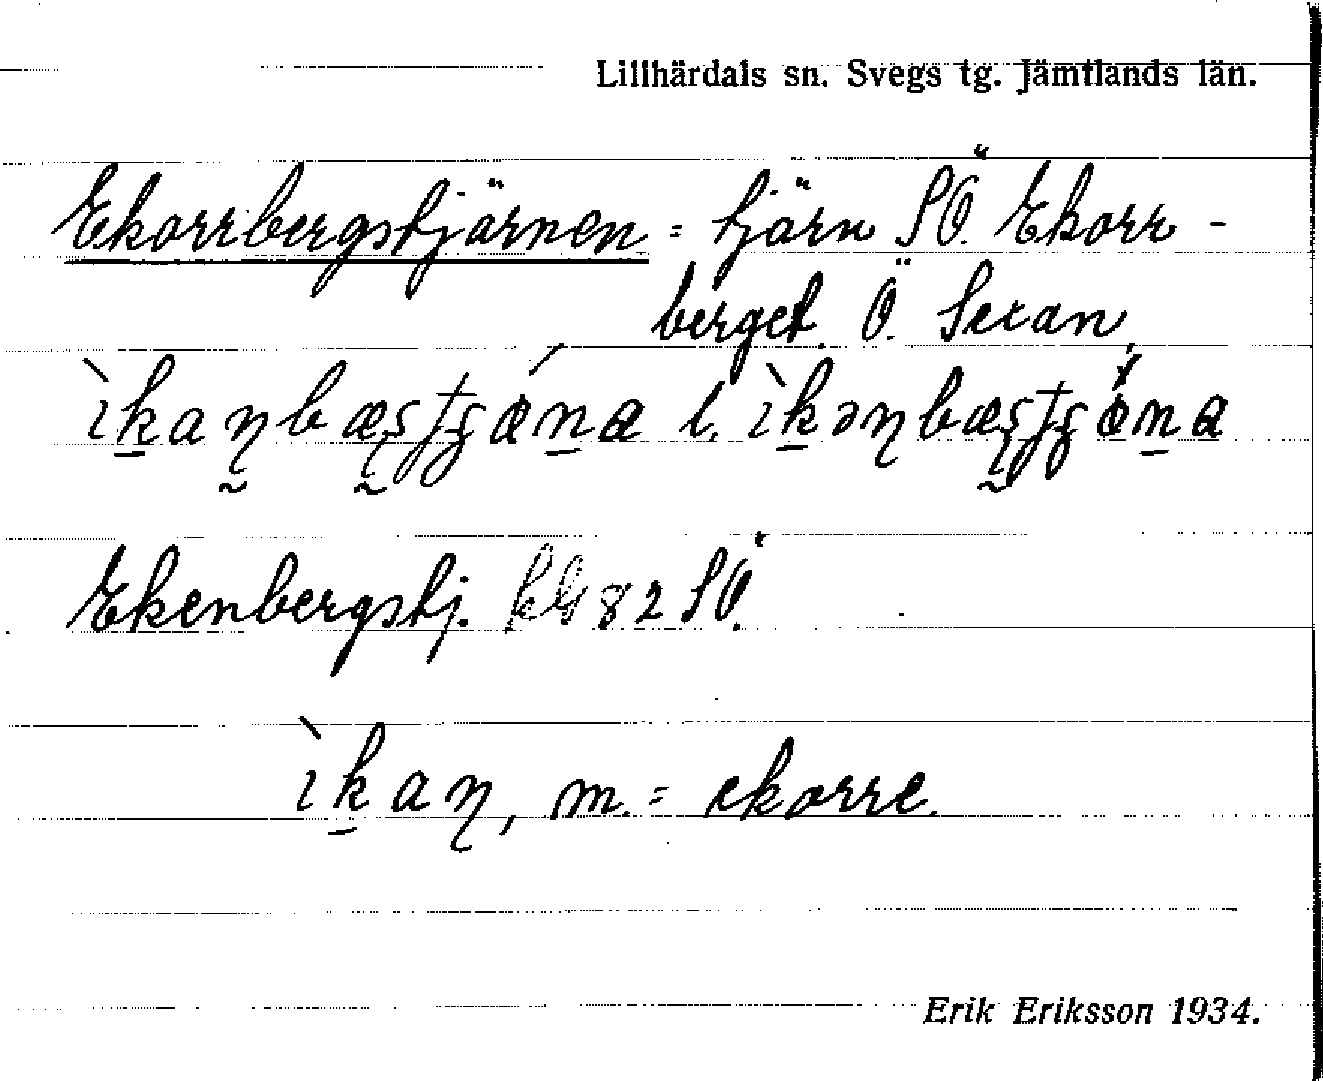 Lillhärdals sn. Svegs tg. Jämtlands län.
Ekorrbergstjärnen = tjärn SÖ. Ekorr-
berget. Ö. Sexan,
l.
Ekenbergstj. kG 82 SÖ.
ìkaŋ, m. = ekorre.
Erik Eriksson 1934.